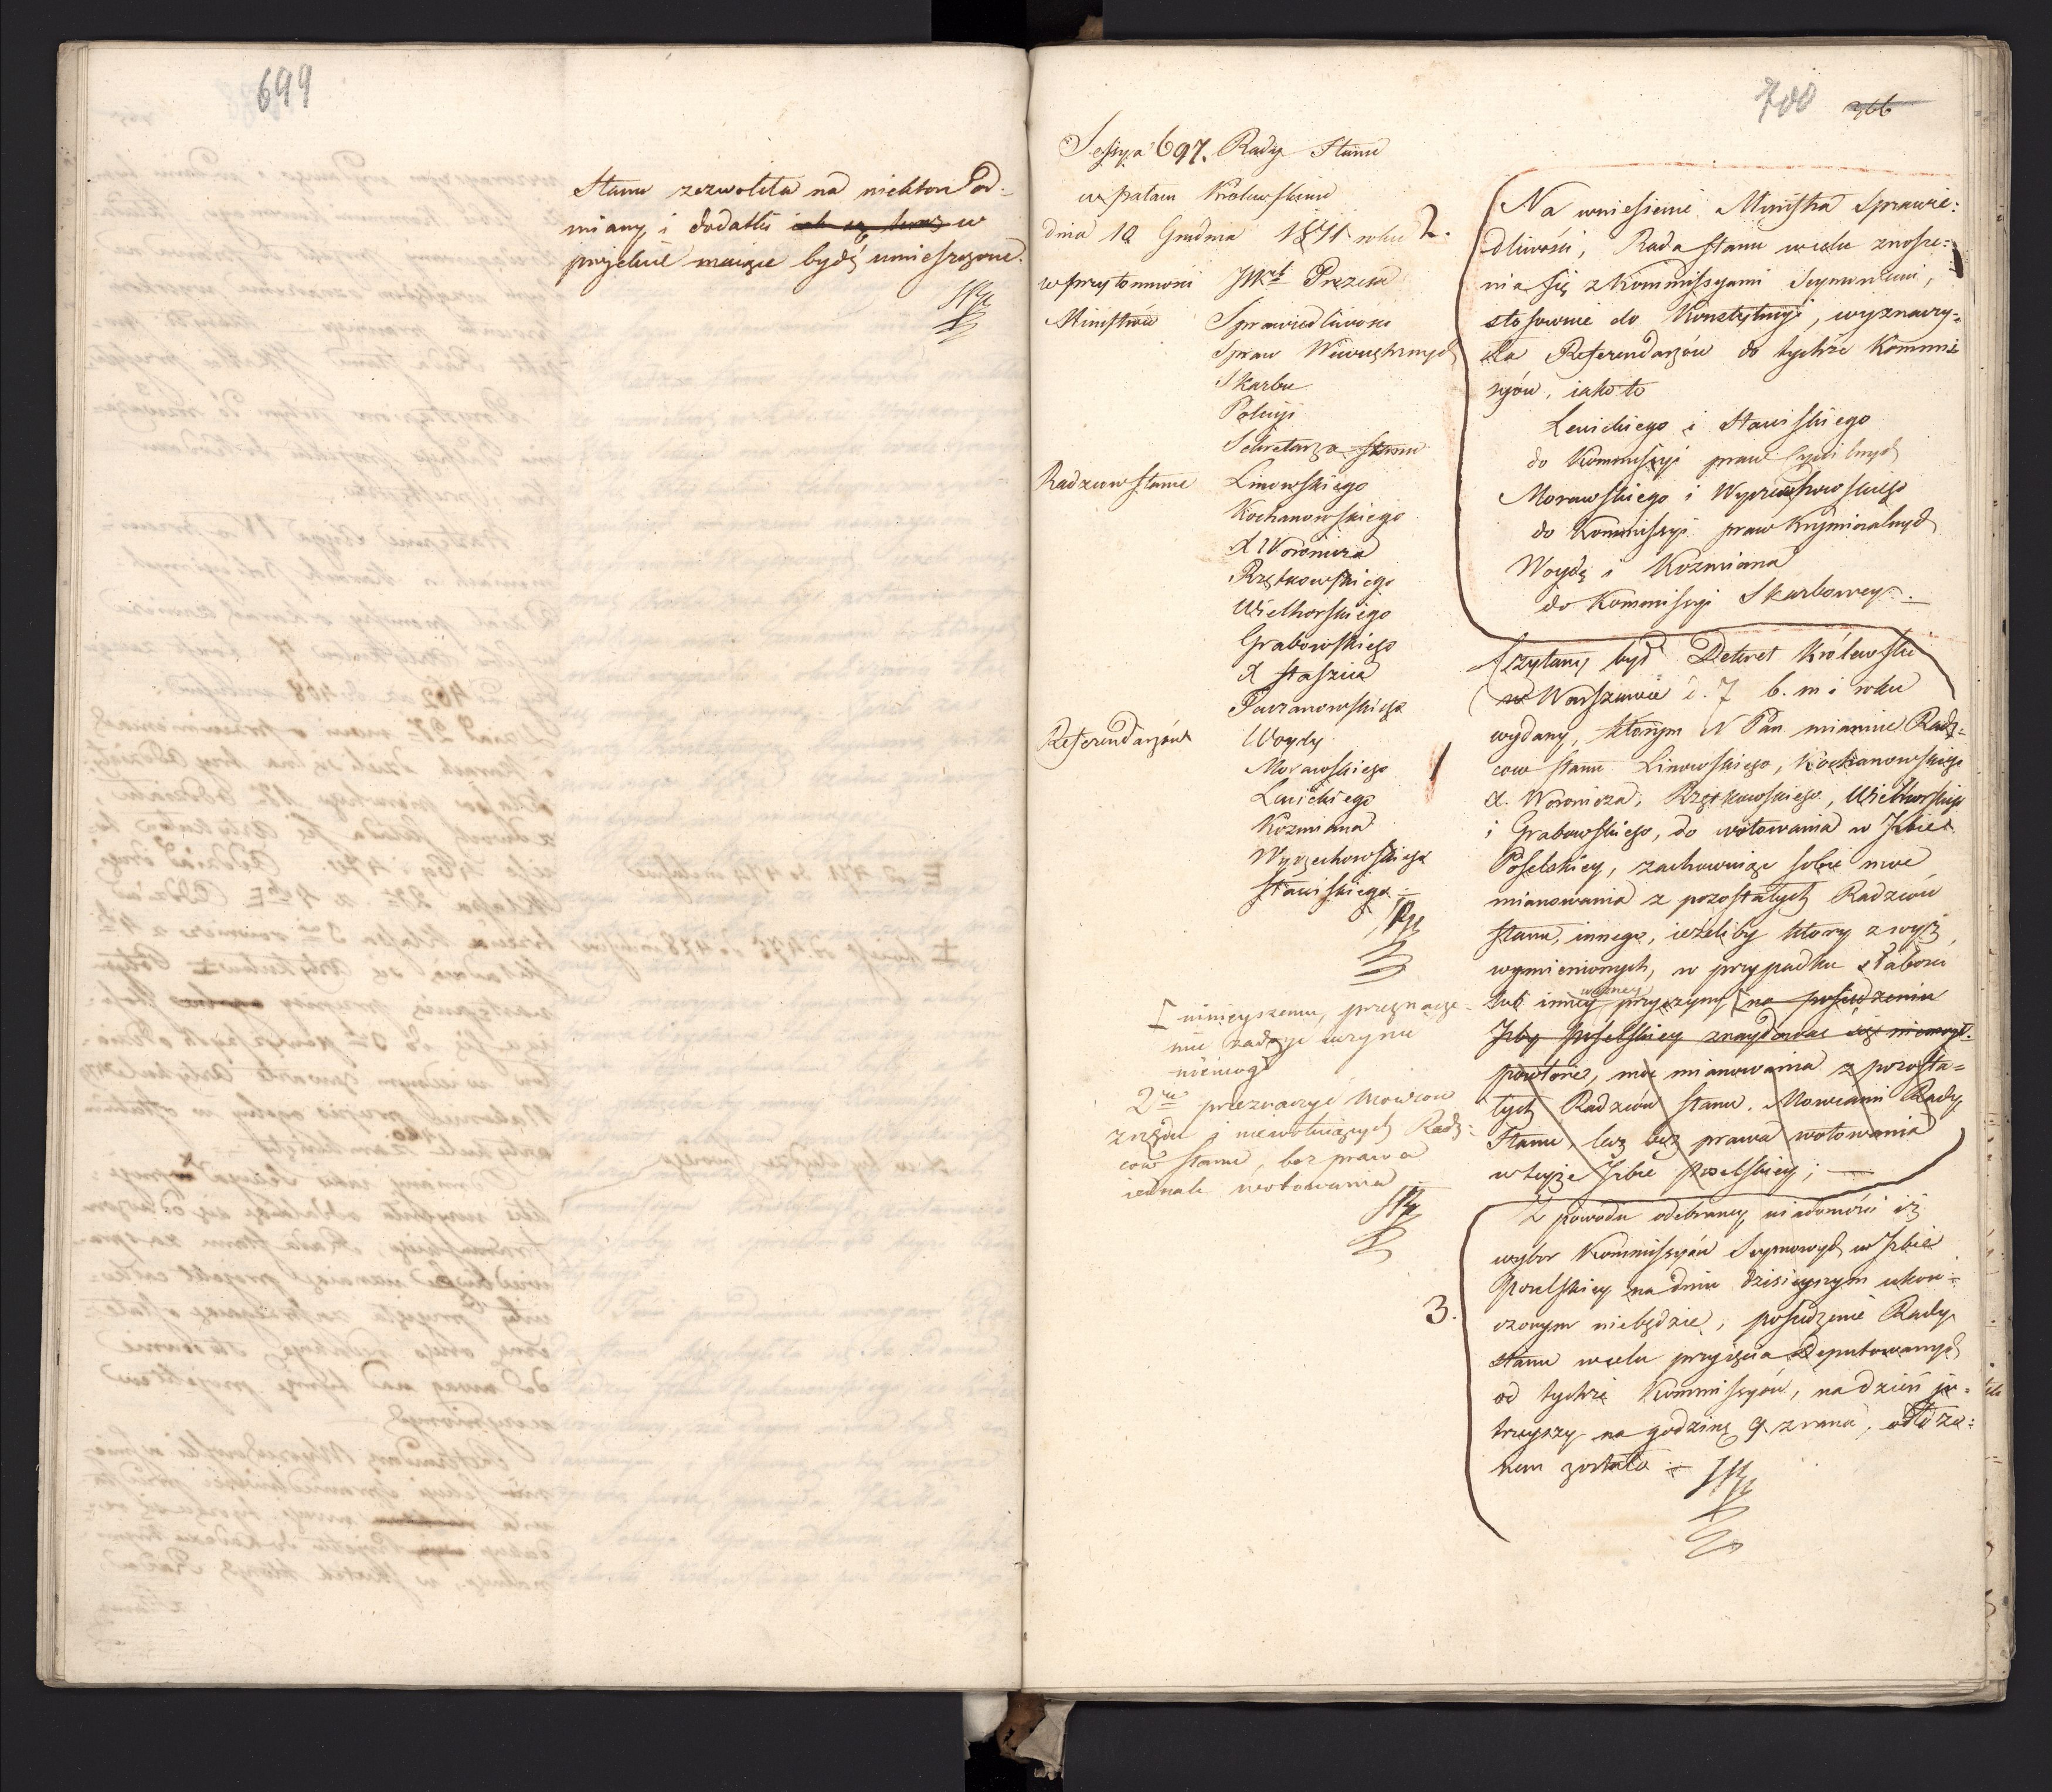 699
Stanu zezwoliła na niektore od=
miany i dodatki w
projekcie maiące bydź umieszczone.
700 366
Sessya 697. Rady Stanu
w pałacu Królewskim
dnia 10 Grudnia 1811 roku
w przytomności JW Prezesa
Ministrów Sprawiedliwości
Spraw Wewnętrznych
Skarbu
Policyi
Sekretarza Stanu
Radzców Stanu Linowskiego
Kochanowskiego
X Woronicza
Rzętkowskiego
Wielhorskiego
Grabowskiego
X Staszica
Referendarzów Woydy
Morawskiego
Lewickiego
Koźmiana
Wyczechowskiego
Stawiskiego
ninieyszemu, przeznacze-
nie zadosyć uczynić
niemogł
2re przeznaczyć Mowców
z rzędu i niewotuiących Radz=
cow Stanu, bez prawa
iednak wotowania
2.
Na wniesienie Ministra Sprawie=
dliwości, Rada Stanu w celu znosze=
nia się z Kommissyami Seymowemi,
stosownie do Konstytucyi, wyznaczy=
ła Referendarzów do tychże Kommis
syów, iako to
Lewickiego i Stawiskiego
do Kommissyi praw Cywilnych
Morawskiego i Wyczechowskiego
do Kommissyi praw Kryminalnych
Woydę i Kozmiana
do Kommissyi Skarbowey.
1
Czytany był Dekret Królewski
w Warszawie d. 7 b. m i roku
wydany, którym N Pan mianuie Radz=
cow Stanu Linowskiego, Kochanowskiego
X. Woronicza, Rzętkowskiego, Wielhorskiego
i Grabowskiego, do wotowania w Izbie
Poselskiey, zachowuiąc sobie moc
mianowania z pozostałych Radzców
Stanu, innego, ieżeliby ktory z wyż
wymienionych, w przypadku słabości
ważney
lub inney przyczyny na posiedzeniu
Izby poselskiey znaydować się niemogł.
powtore, moc mianowania z pozosta=
łych Radzców Stanu. Mowcami Rady
Stanu, lecz bez prawa wotowania
w teyże Izbie poselskiey;
3.
Z powodu odebraney wiadomości iż
wybor Kommissyów Seymowych w Izbie
Poselskiey na dniu dzisieyszym ukoń=
czonym niebędzie, posiedzenie Rady
Stanu w celu przyięcia Deputowanych
od tychże Kommissyów, na dzień ju=
trzeyszy na godzinę 9 z rana, odłożo=
nem zostało